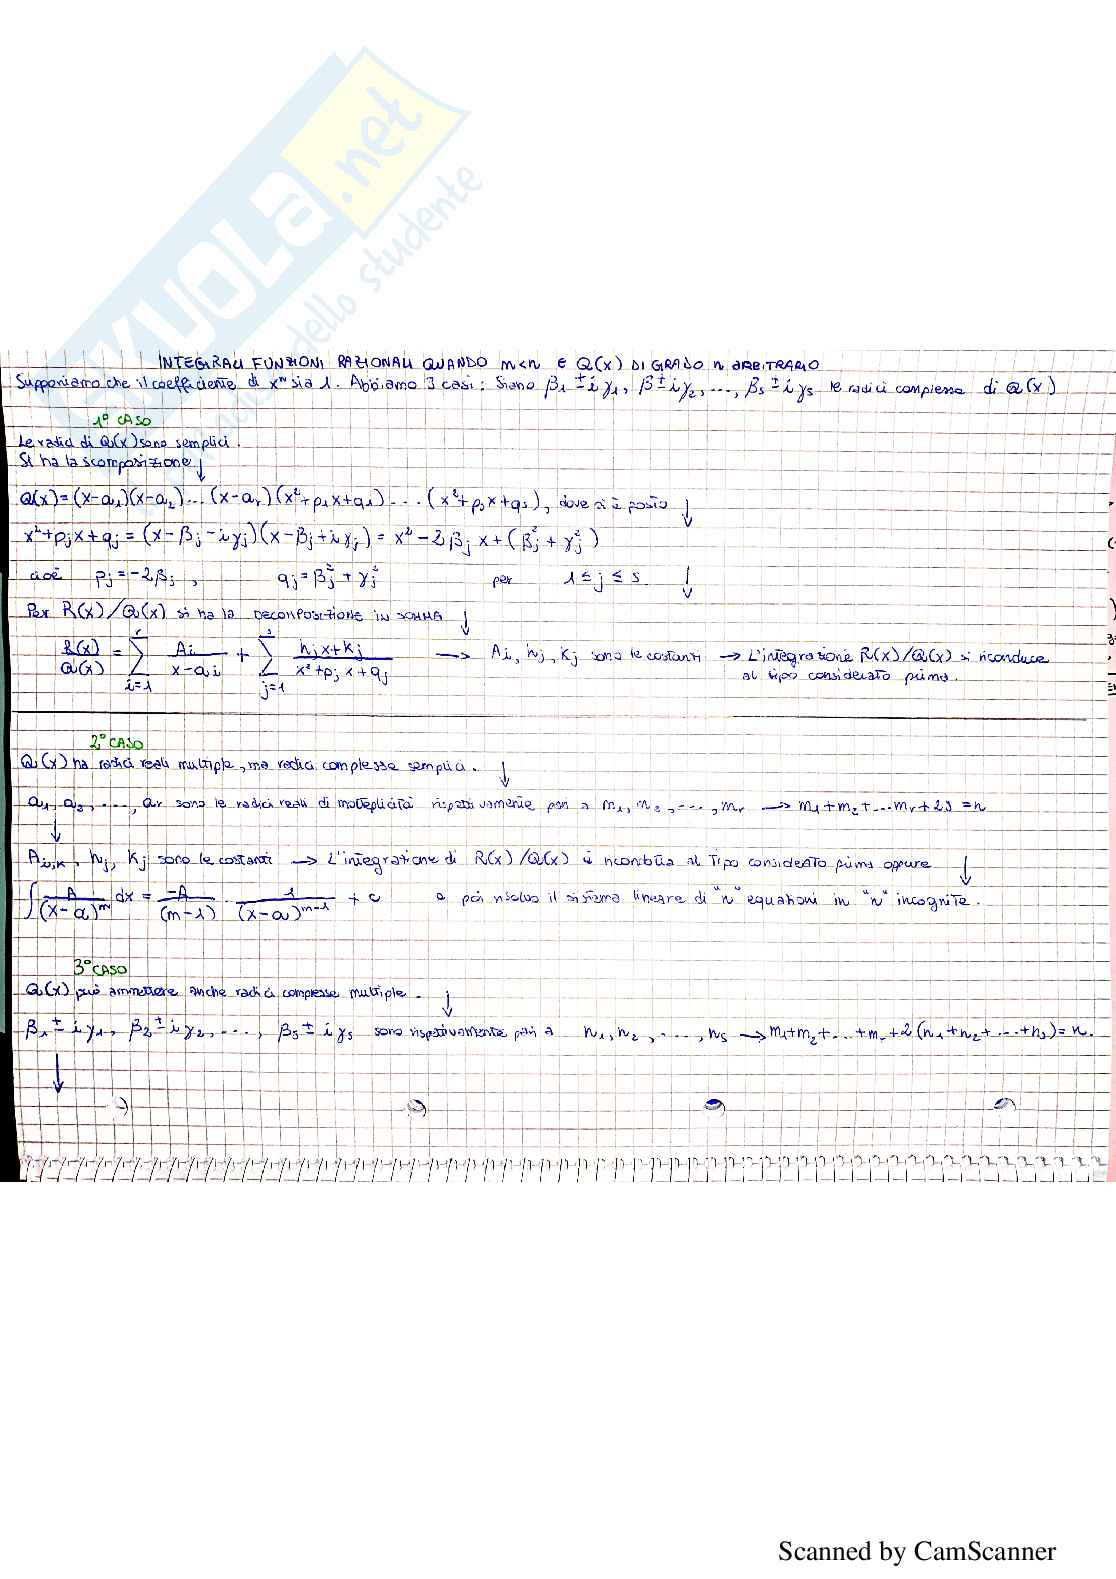 SKUOLA.net
dello studente
INTEGRALI FUNZIONI RAZIONALI QUANDO m<n E Q(x) DI GRADO n ARBITRARIO
Supponiamo che il coefficiente di xⁿ sia 1. Abbiamo 3 casi: Siano β₁ ± iγ₁, β ± iγ₂, ..., βs ± iγs le radici complesse di Q(x)
1° CASO
Le radici di Q(x) sono semplici.
Si ha la scomposizione ↓
Q(x) = (x-a₁)(x-a₂)...(x-ar)(x²+p₁x+q₁)...(x²+psx+qs), dove si è posto ↓
x²+pjx+qj = (x-βj-iγj)(x-βj+iγj) = x²-2βjx+(βj²+γj²)
cioè pj=-2βj, qj=βj²+γj² per 1≤j≤s ↓
Per R(x)/Q(x) si ha la DECOMPOSIZIONE IN SOMMA ↓
R(x)/Q(x) = Σ_{i=1}^{r} Ai/(x-ai) + Σ_{j=1}^{s} (hjx+kj)/(x²+pjx+qj) → Ai, hj, kj sono le costanti → L'integrazione R(x)/Q(x) si riconduce
al tipo considerato prima.
2° CASO
Q(x) ha radici reali multiple, ma radici complesse semplici. ↓
a₁, a₂, ..., ar sono le radici reali di molteplicità rispettivamente pari a m₁, m₂, ..., mr → m₁+m₂+...mr+2s=n
↓
Ai,k, hj, kj sono le costanti → L'integrazione di R(x)/Q(x) è ricondotta al tipo considerato prima oppure ↓
∫ A/(x-a)^m dx = -A/(m-1) · 1/(x-a)^{m-1} + c e poi risolvo il sistema lineare di "n" equazioni in "n" incognite.
3° CASO
Q(x) può ammettere anche radici complesse multiple. ↓
β₁ ± iγ₁, β₂ ± iγ₂, ..., βs ± iγs sono rispettivamente pari a n₁, n₂, ..., ns → m₁+m₂+...+mr+2(n₁+n₂+...+ns)=n.
↓
Scanned by CamScanner